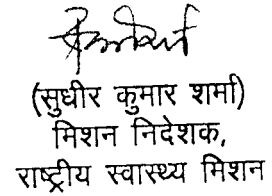 (सुधीर कुमार शर्मा)
मिशन निदेशक,
राष्ट्रीय स्वास्थ्य मिशन